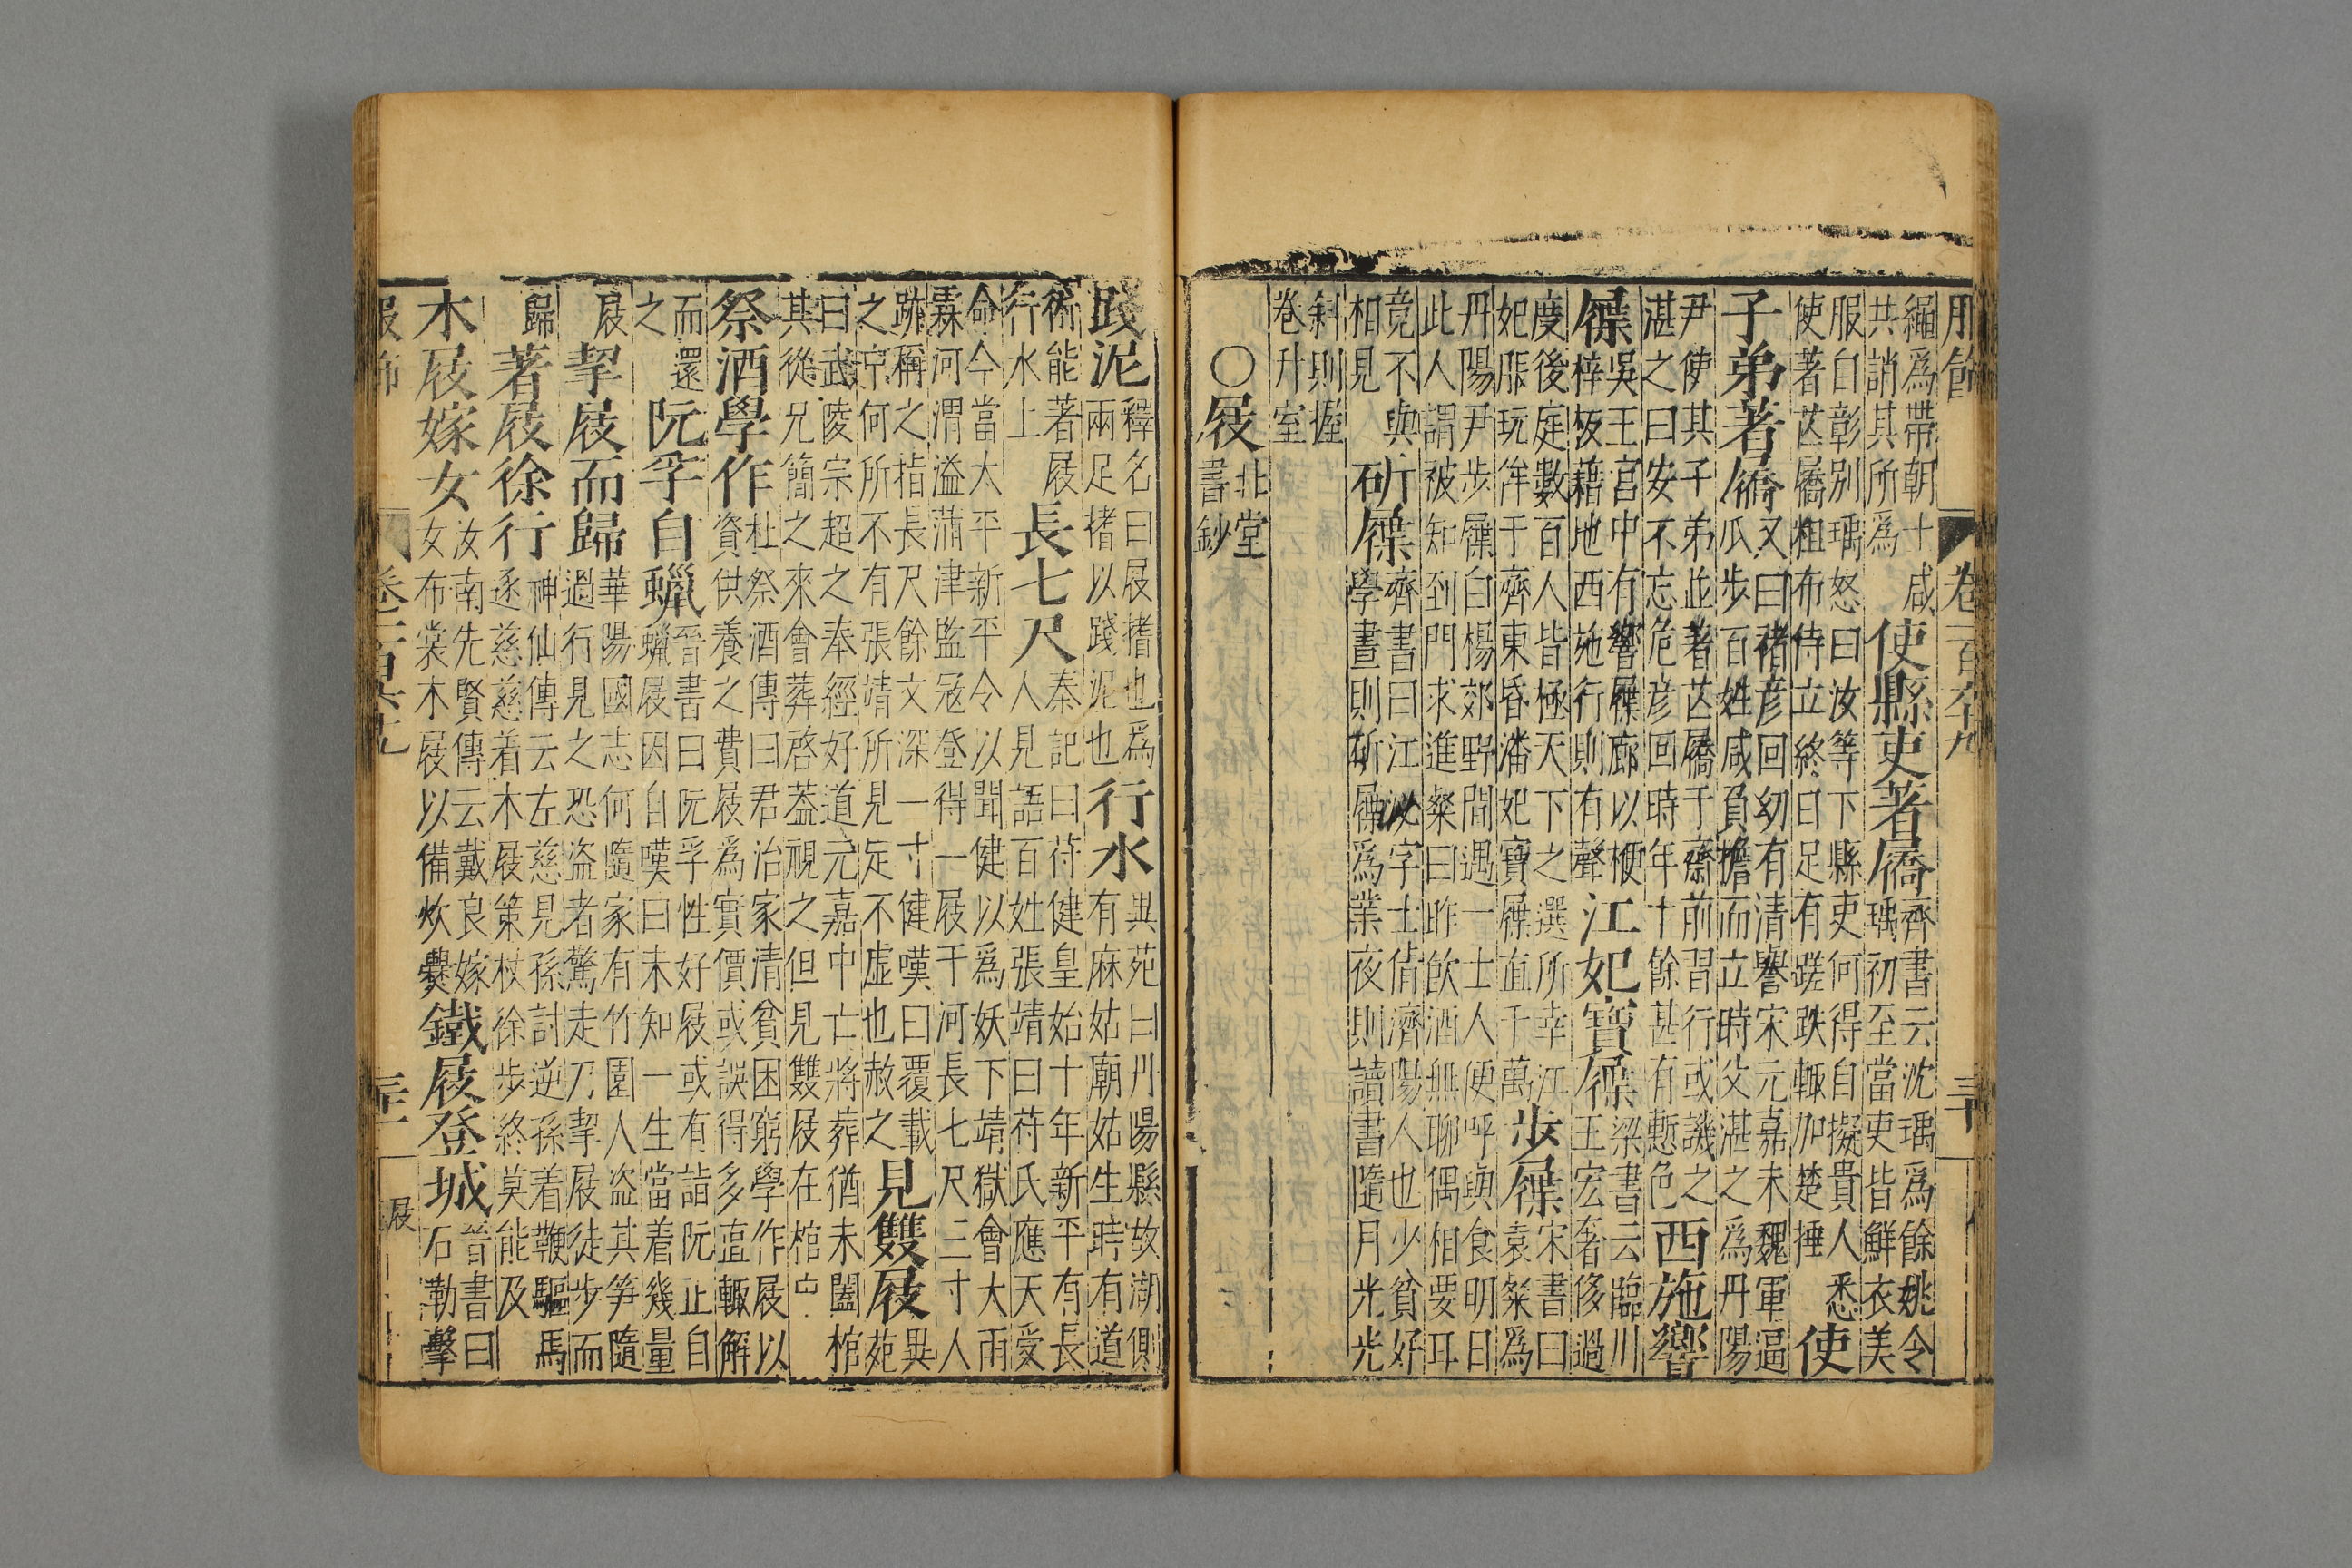 服飾 卷一百
繩爲帶朝十咸
共誚其所爲
使縣吏著屩
齊書云沈瑀爲餘姚令
瑀初至當吏皆鮮衣美
服自彰別瑀怒曰汝等下縣吏何得自擬貴人悉
使著芒屩粗布侍立終日足有蹉跌輙加楚捶
使
子弟著屩
又曰褚彦回幼有清譽宋元嘉末魏軍逼
瓜步百姓咸負擔而立時父湛之爲丹陽
尹使其子弟並著芒屩于齋前習行或譏之
湛之曰安不忘危彦回時年十餘甚有慙色
西施響
屧
吳王宮中有響屧廊以楩
梓板藉地西施行則有聲
江妃寶屧
梁書云臨川
王宏奢侈過
度後庭數百人皆極天下之選所幸江
妃服玩侔于齊東昏潘妃寶屧直千萬
步屧
宋書曰
袁粲爲
丹陽尹步屧白楊郊野間遇一士人便呼與食明日
此人謂被知到門求進粲曰昨飲酒無聊偶相要耳
竟不與
相見
斫屧
齊書曰江泌字士倩濟陽人也少貧好
學晝則斫屧爲業夜則讀書隨月光光
斜則握
卷升室
○屐
北堂
書鈔
踐泥
釋名曰屐搘也爲
兩足搘以踐泥也
行水
異苑曰丹陽縣故湖側
有麻姑廟姑生時有道
術能著屐
行水上
長七尺
秦記曰苻健皇始十年新平有長
人見語百姓張靖曰苻氏應天受
命今當太平新平令以聞健以爲妖下靖獄會大雨
霖河渭溢蒲津監寇登得一屐于河長七尺三寸人
跡稱之指長尺餘文深一寸健嘆曰覆載
之中何所不有張靖所見定不虛也赦之
見雙屐
異
苑
曰武陵宗超之奉經好道元嘉中亡將葬猶未闔棺
其從兄簡之來會葬啓蓋視之但見雙屐在棺中
祭酒學作
杜祭酒傳曰君治家清貧困窮學作屐以
資供養之費屐爲實價或誤得多直輙解
而還
之
阮孚自蠟
晉書曰阮孚性好屐或有詣阮止自
蠟屐因自嘆曰未知一生當着幾量
屐
挈屐而歸
華陽國志何隨家有竹園人盜其笋隨
過行見之恐盜者驚走乃挈屐徒步而
歸
著屐徐行
神仙傳云左慈見孫討逆孫着鞭驅馬
逐慈慈着木屐策杖徐步終莫能及
木屐嫁女
汝南先賢傳云戴良嫁
女布裳木屐以備炊爨
鐵屐登城
晉書曰
石勒擊
服飾 屐